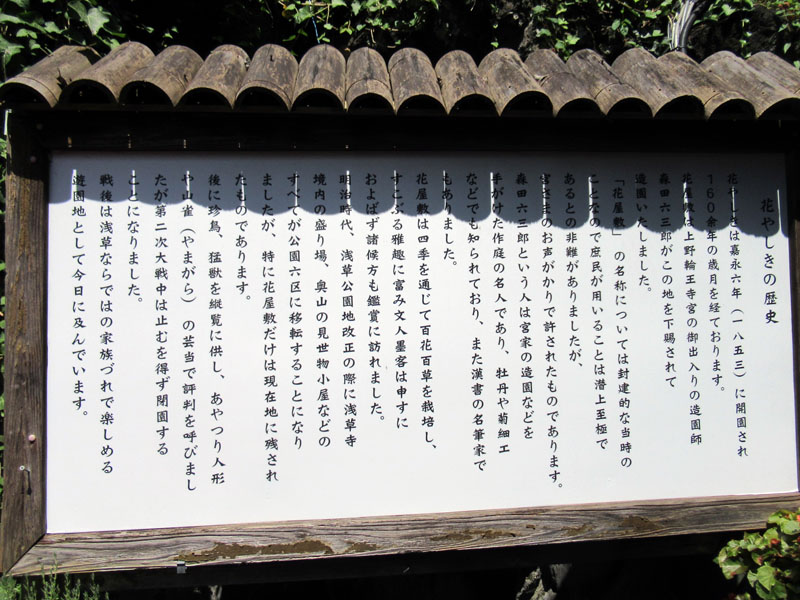 花やしきの歴史
花やしきは嘉永六年(一八五三)に開園され
160余年の歳月を経ております。
花屋敷は上野輪王寺宮の御出入りの造園師
森田六三郎がこの地を下賜されて
造園いたしました。
「花屋敷」の名称については封建的な当時の
ことなので庶民が用いることは潜上至極で
あるとの非難がありましたが、
宮さまのお声がかりで許されたものであります。
森田六三郎という人は宮家の造園などを
手がけた作庭の名人であり、牡丹や菊細工
などでも知られており、また漢書の名筆家で
もありました。
花屋敷は四季を通じて百花百草を栽培し、
すこぶる雅趣に富み文人墨客は申すに
およばず諸候方も鑑賞に訪れました。
明治時代、浅草公園地改正の際に浅草寺
境内の盛り場、奥山の見世物小屋などの
すべてが公園六区に移転することになり
ましたが、特に花屋敷だけは現在地に残され
たものであります。
後に珍鳥、猛獣を縦覧に供し、あやつり人形
や山雀(やまがら)の芸当で評判を呼びまし
たが第二次大戦中は止むを得ず閉園する
ことになりました。
戦後は浅草ならではの家族づれで楽しめる
遊園地として今日に及んでいます。